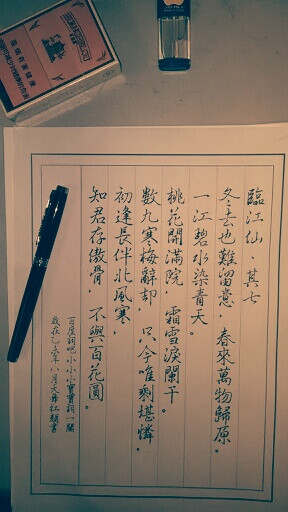 臨江仙、其七
冬去也難留意，春來萬物歸原。
一江碧水染青天。
桃花開滿院，霜雪淚闌干。
數九寒梅辭却，只今唯剩堪憐。
初逢長伴北風寒，
知君存傲骨，不與百花圓。
百度詞吧小小小寶寶詞一闋
歲在乙未年八月大